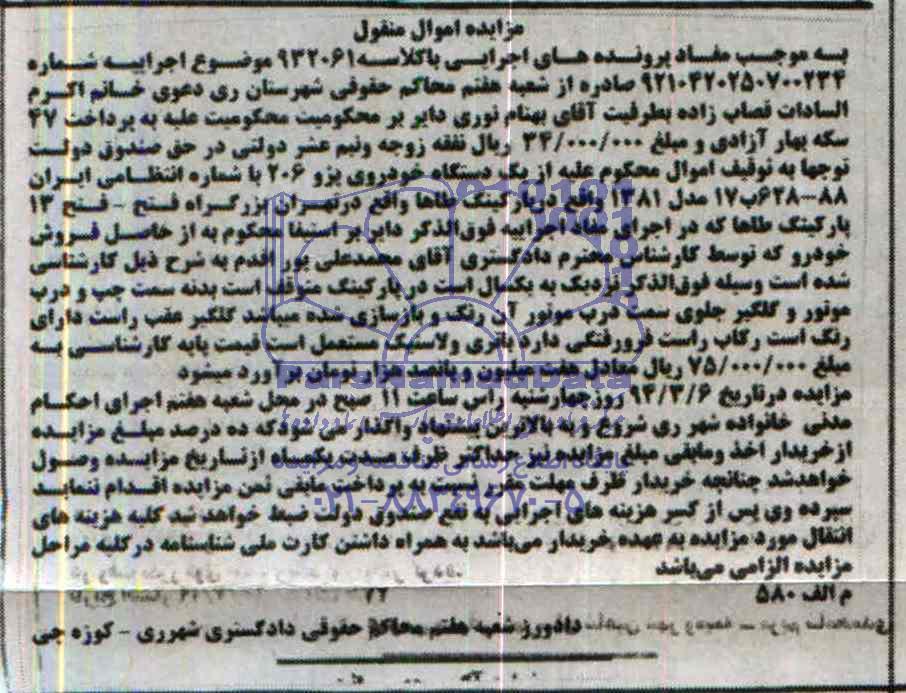 مزایده اموال منقول
به موجب مفاد پرونده های اجرایی باکلاسه ۹۳۲۰۶۱ موضوع اجراییه شماره
۹۲۱۰۴۲۰۲۵۰۷۰۰۲۳۴ صادره از شعبه هفتم محاکم حقوقی شهرستان ری دعوی خانم اکرم
السادات قصاب زاده بطرفیت آقای بهنام نوری دایر بر محکومیت محکومیت علیه به پرداخت ۴۷
سکه بهار آزادی و مبلغ ۳۴/۰۰۰/۰۰۰ ریال نفقه زوجه ونیم عشر دولتی در حق صندوق دولت
توجها به توقیف اموال محکوم علیه از یک دستگاه خودروی پژو ۲۰۶ با شماره انتظامی ایران
۸۸-۶۲۸ب۱۷ مدل ۱۳۸۱ واقع درپارکینگ طاها واقع درتهران بزرگراه فتح - فتح ۱۳
پارکینگ طاها که در اجرای مفاد اجراییه فوق‌الذکر دایر بر استیفا محکوم به از حاصل فروش
خودرو که توسط کارشناس محترم دادگستری آقای محمدعلی پور اقدم به شرح ذیل کارشناسی
شده است وسیله فوق‌الذکر نزدیک به یکسال است در پارکینگ متوقف است بدنه سمت چپ و درب
موتور و گلگیر جلوی سمت درب موتور آن رنگ و بازسازی شده میباشد گلگیر عقب راست دارای
رنگ است رکاب راست فرورفتگی دارد باطری ولاستیک مستعمل است قیمت پایه کارشناسی به
مبلغ ۷۵/۰۰۰/۰۰۰ ریال معادل هفت میلیون و پانصد هزار تومان برآورد میشود
مزایده درتاریخ ۹۴/۳/۶ روزچهارشنبه راس ساعت ۱۱ صبح در محل شعبه هفتم اجرای احکام
مدنی خانواده شهر ری شروع و به بالاترین پیشنهاد واگذار می شودکه ده درصد مبلغ مزایده
ازخریدار اخذ ومابقی مبلغ مزایده نیز حداکثر ظرف مدت یکماه ازتاریخ مزایده وصول
خواهدشد چنانچه خریدار ظرف مهلت مقرر نسبت به پرداخت مابقی ثمن مزایده اقدام ننماید
سپرده وی پس از کسر هزینه های اجرائی به نفع صندوق دولت ضبط خواهد شد کلیه هزینه های
انتقال مورد مزایده به عهده خریدار می‌باشد به همراه داشتن کارت ملی شناسنامه درکلیه مراحل
مزایده الزامی می‌باشد
م الف ۵۸۰
دادورز شعبه هفتم محاکم حقوقی دادگستری شهرری - کوزه چی
ParsNamadData
۰۲۱-۸۸۳۴۹۶۷۰-۵